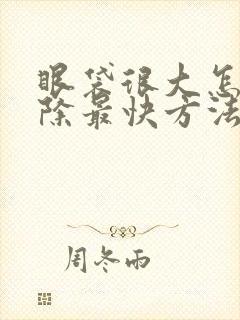 眼袋很大怎
除最快方法
周冬雨